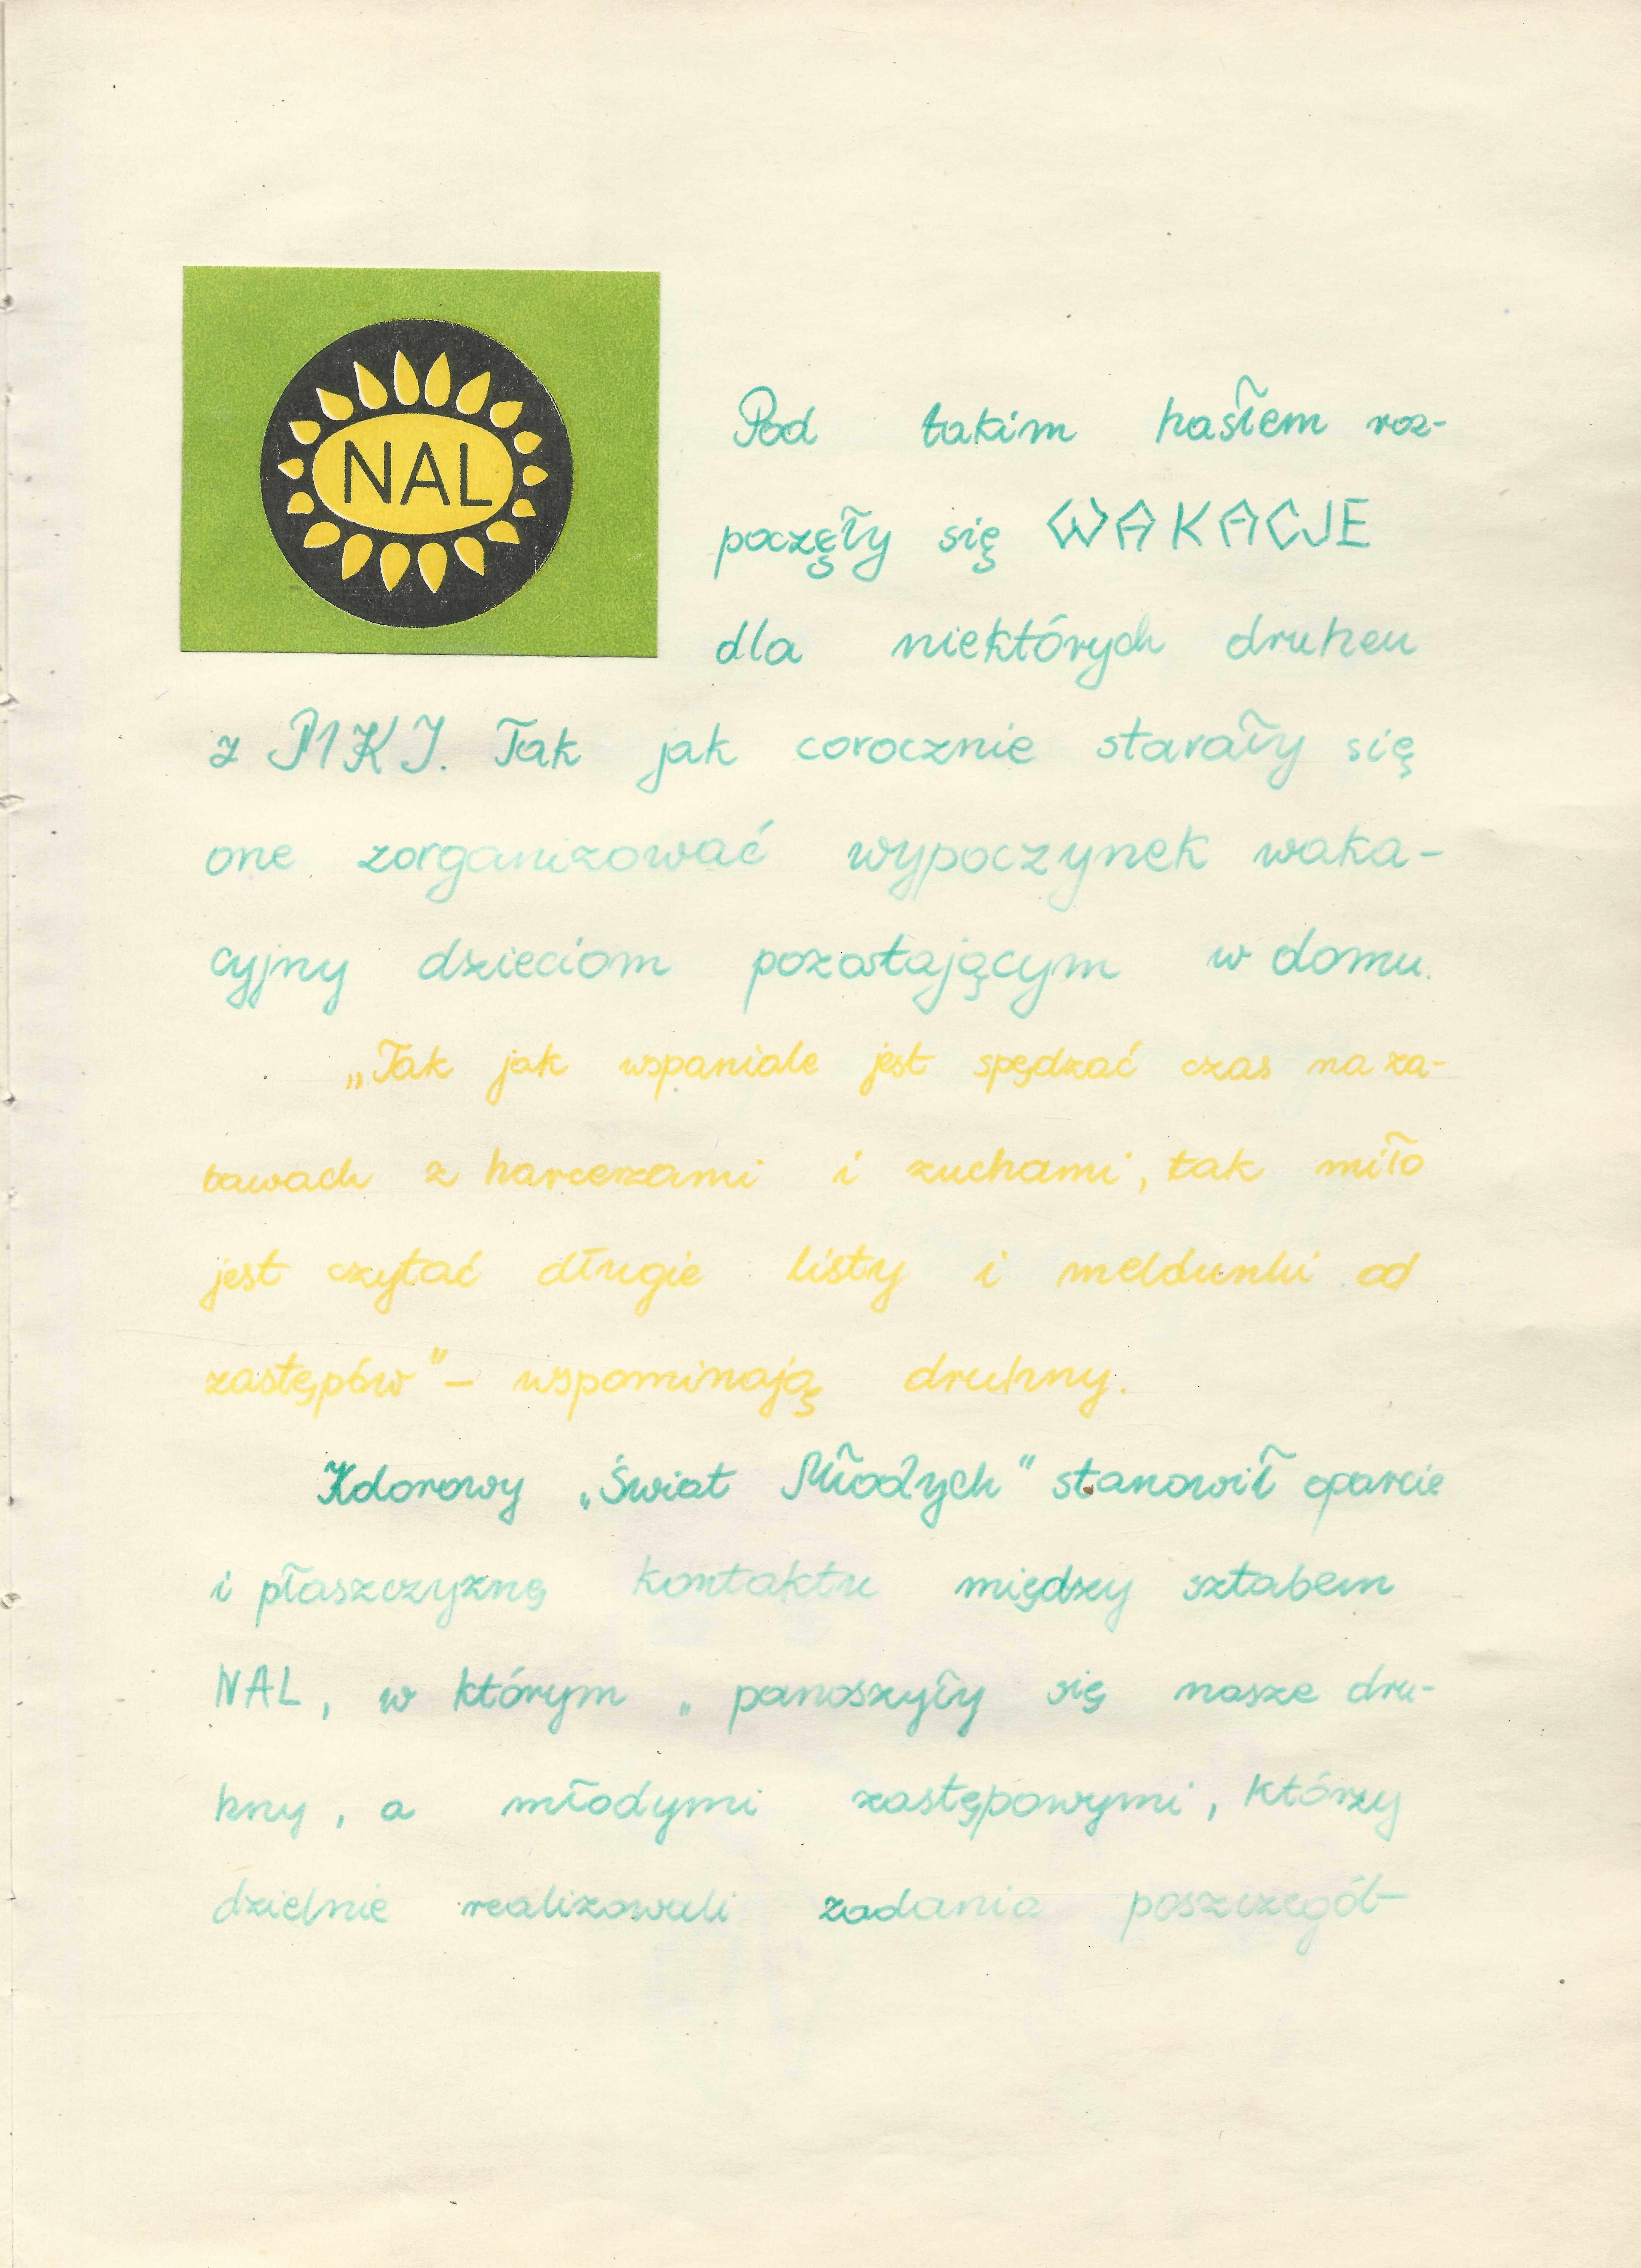 NAL
Pod takim hasłem roz-
poczęły się WAKACJE
dla niektórych druhen
z PIKI. Tak jak corocznie starały się
one zorganizować wypoczynek waka-
cyjny dzieciom pozostającym w domu.
„Tak jak wspaniale jest spędzać czas na za-
bawach z harcerzami i zuchami, tak miło
jest czytać długie listy i meldunki od
zastępów" – wspominają druhny.
Kolorowy „Świat Młodych" stanowił oparcie
i płaszczyznę kontaktu między sztabem
NAL, w którym „panoszyły się nasze dru-
hny, a młodymi zastępowymi, którzy
dzielnie realizowali zadania poszczegól-